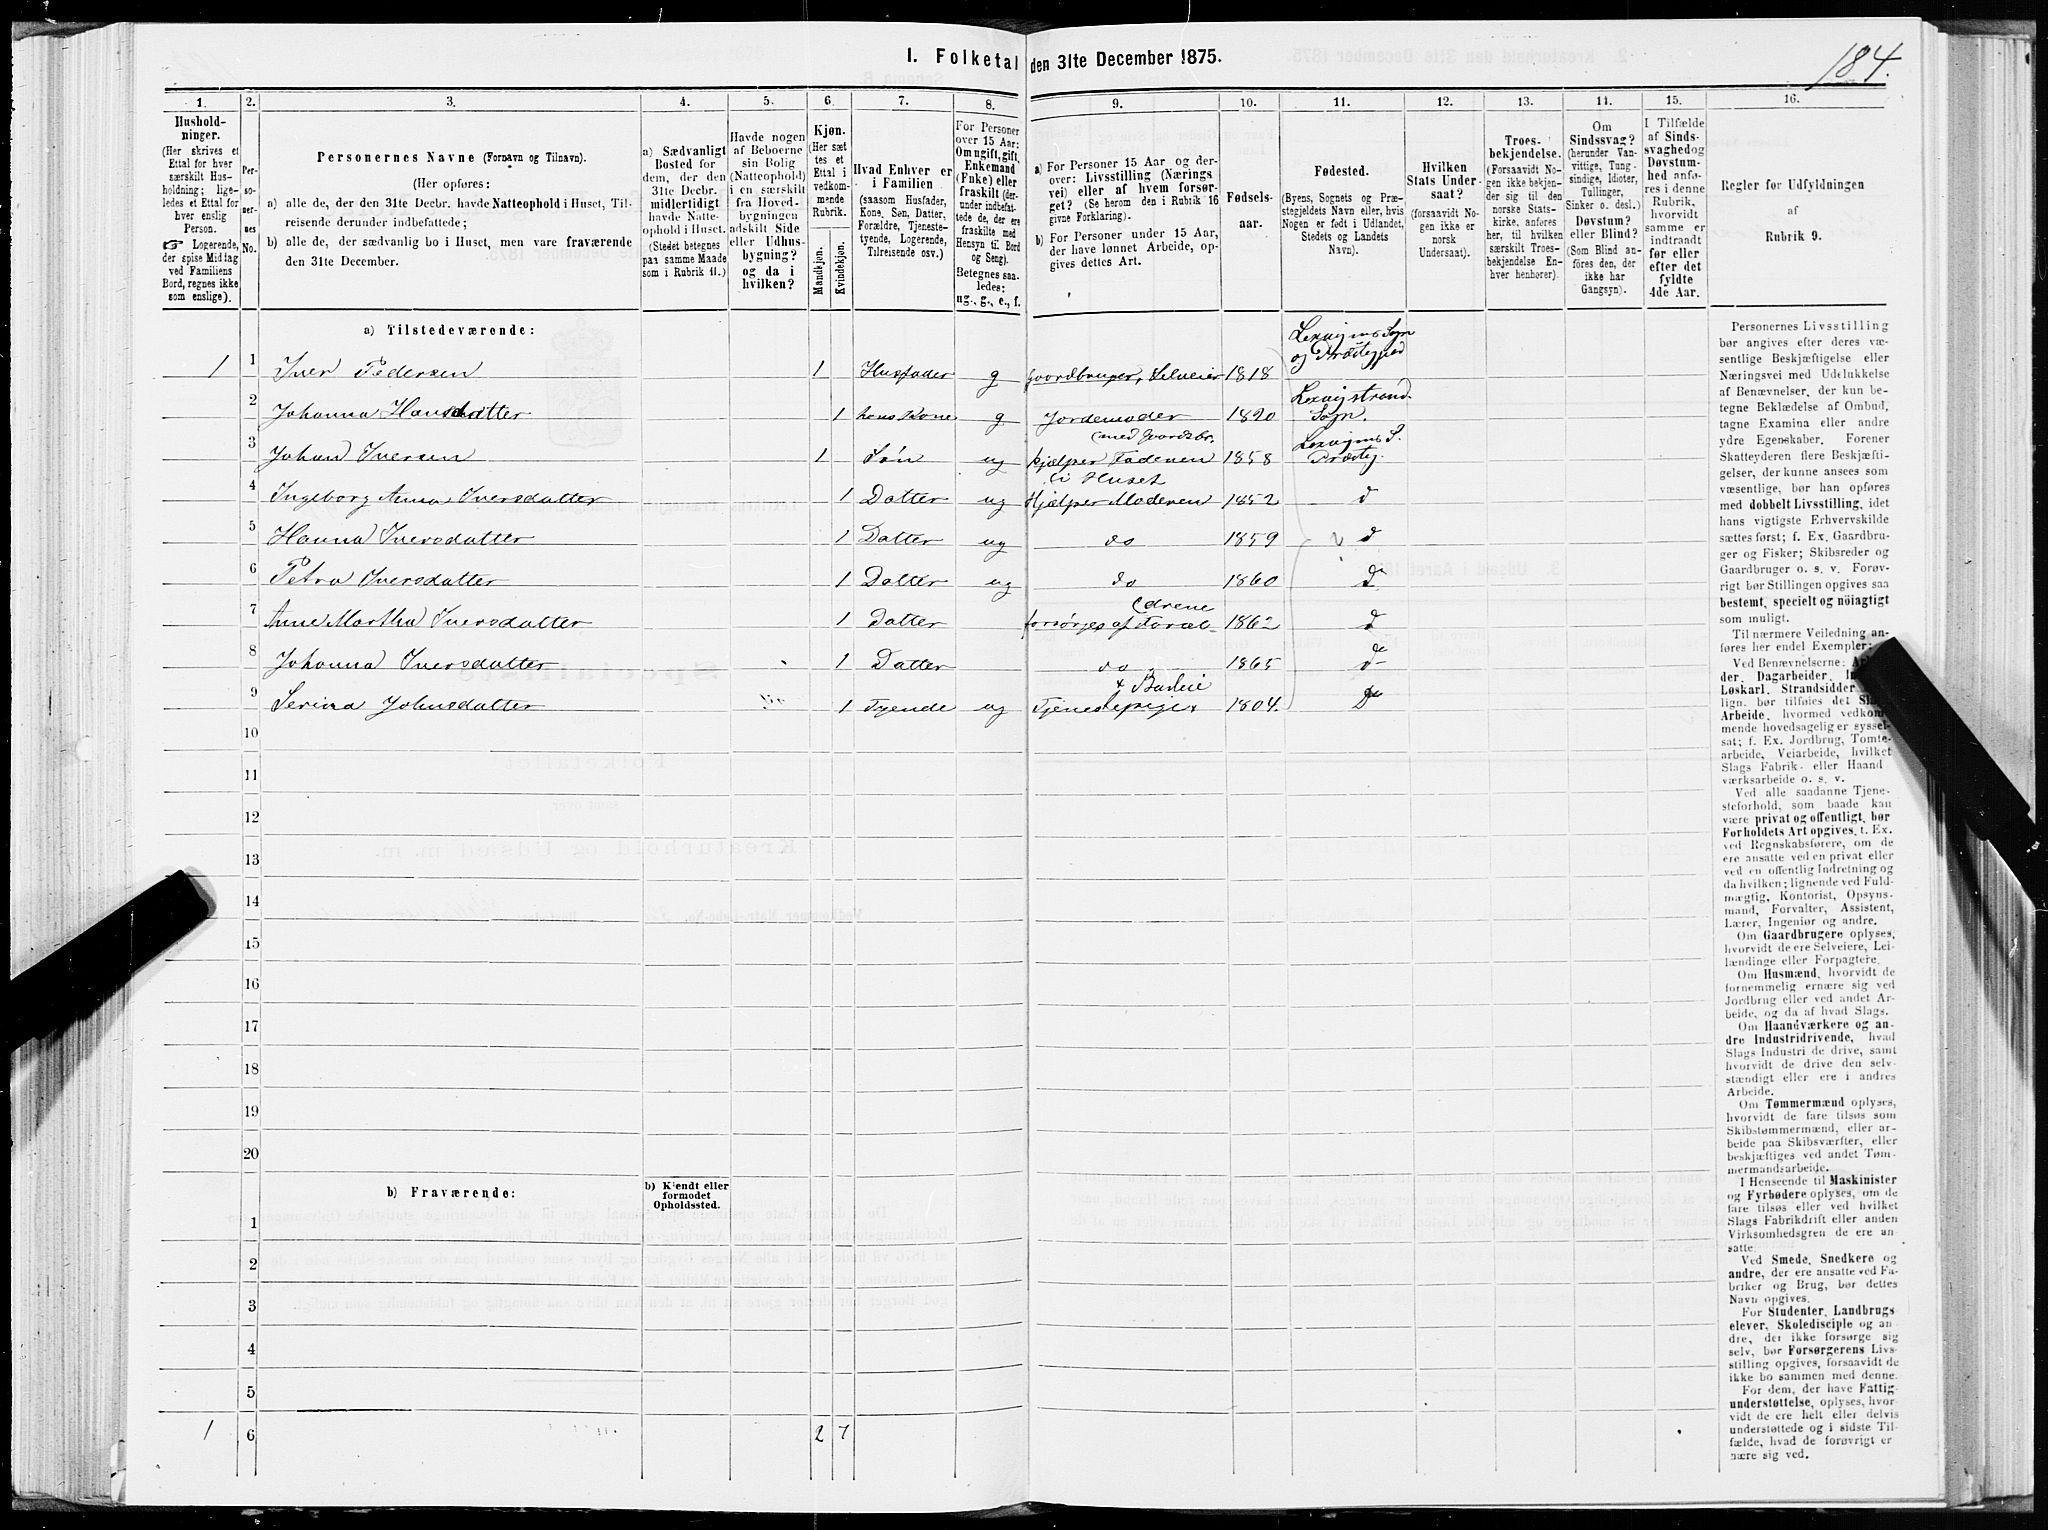 184.
I. Folketal den 31te December 1875.
1. 2. 3. 4. 5. 6. 7. 8. 9. 10. 11. 12. 13. 14. 15. 16.
Husholdninger.
(Her skrives et
Ettal for hver
særskilt Husholdning; ligeledes et Ettal for
hver enslig
Person.
☞ Logerende,
der spise Middag
ved Familiens
Bord, regnes ikke
som enslige).
Personernes No.
Personernes Navne (Fornavn og Tilnavn).
(Her opføres:
a) alle de, der den 31te Decbr. havde Natteophold i Huset, Tilreisende derunder indbefattede;
b) alle de, der sædvanlig bo i Huset, men vare fraværende
den 31te December.
a) Sædvanligt
Bosted for
dem, der den
31te Decbr.
midlertidigt
havde Natteophold i Huset.
(Stedet betegnes
paa samme Maade
som i Rubrik 11.)
Havde nogen
af Beboerne
sin Bolig
(Natteophold)
i en særskilt
fra Hovedbygningen
adskilt Side
eller Udhusbygning?
og da i
hvilken?
Kjøn.
(Her sættes et
Ettal i
vedkommende
Rubrik.
Mandkjøn.
Kvindekjøn.
Hvad Enhver er
i Familien
(saasom Husfader,
Kone, Søn, Datter,
Forældre, Tjenestetyende, Logerende,
Tilreisende osv.)
For Personer
over 15 Aar:
Om ugift, gift,
Enkemand
(Enke) eller
fraskilt (derunder indbefattede de, der ere
fraskilte med
Hensyn til Bord
og Seng).
Betegnes saaledes:
ug., g., e., f.
a) For Personer 15 Aar og derover: Livsstilling (Næringsvei) eller af hvem forsørget? (Se herom den i Rubrik 16
givne Forklaring).
b) For Personer under 15 Aar,
der have lønnet Arbeide, opgives dettes Art.
Fødselsaar.
Fødested.
(Byens, Sognets og Præstegjeldets Navn eller, hvis
Nogen er født i Udlandet,
Stedets og Landets
Navn).
Hvilken
Stats Undersaat?
(forsaavidt Nogen ikke er
norsk
Undersaat).
Troesbekjendelse.
(Forsaavidt Nogen ikke bekjender sig til den
norske Statskirke, anføres
her, til hvilken
særskilt Troesbekjendelse Enhver henhører).
Om
Sindssvag?
(herunder Vanvittige, Tungsindige, Idioter,
Tullinger,
Sinker o. desl.)
Døvstum?
eller Blind?
(Som Blind anføres den, der
ikke har
Gangsyn).
I Tilfælde
af Sindssvaghed og
Døvstumhed anføres i denne
Rubrik,
hvorvidt
samme er
indtraadt
før eller
efter det
fyldte
4de Aar.
Regler for Udfyldningen
af
Rubrik 9.
a) Tilstedeværende:
1 1 Iver Pedersen 1 Husfader g Gaardbruger, Selveier 1818 Lexvigens Sogn og Præstegjeld
2 Johanna Hansdatter 1 hans Kone g Jordemoder 1820 Lexvigstrand. Sogn.
3 Johan Iversen 1 Søn ug hjælper Faderen med Gaardsbr. 1858 Lexvigens S. Præstg.
4 Ingeborg Anna Iversdatter 1 Datter ug Hjælper Moderen i Huset 1852 d
5 Hanna Iversdatter 1 Datter ug do 1859 d
6 Petra Iversdatter 1 Datter ug do 1860 d
7 Anne Martha Iversdatter 1 Datter forsørges af Forældrene 1862 d
8 Johanna Iversdatter 1 Datter do 1865 do
9 Serina Johnsdatter 1 Tyende ug Tjenestepige 1804. Do
10
11
12
13
14
15
16
17
18
19
20
b) Fraværende:
b) Kjendt eller
formodet
Opholdssted.
1
2
3
4
5
1 6 2 7
Personernes Livsstilling
bør angives efter deres væsentlige Beskjæftigelse eller
Næringsvei med Udelukkelse
af Benævnelser, der kun betegne Beklædelse af Ombud,
tagne Examina eller andre
ydre Egenskaber. Forener
Skatteyderen flere Beskjæftigelser, der kunne ansees som
væsentlige, bør han opføres
med dobbelt Livsstilling, idet
hans vigtigste Erhvervskilde
sættes først; f. Ex. Gaardbruger og Fisker; Skibsreder og
Gaardbruger o. s. v. Forøvrigt bør Stillingen opgives saa
bestemt, specielt og nöiagtigt
som muligt.
Til nærmere Veiledning anføres her endel Exempler:
Ved Benævnelserne:
der, Dagarbeider,
Løskarl, Strandsidder
lign. bør tilføies det Slags
Arbeide, hvormed vedkommende hovedsagelig er sysselsat; f. Ex. Jordbrug, Tomtearbeide, Veiarbeide, hvilket
Slags Fabrik- eller Haandværksarbeide o. s. v.
Ved alle saadanne Tjenesteforhold, som baade kan
være privat og offentligt, bør
Forholdets Art opgives, t. Ex.
ved Regnskabsførere, om de
ere ansatte ved en privat eller
ved en offentlig Indretning og
da hvilken; lignende ved Fuldmægtig, Kontorist, Opsynsmand, Forvalter, Assistent,
Lærer, Ingeniør og andre.
Om Gaardbrugere oplyses,
hvorvidt de ere Selveiere, Leilændinge eller Forpagtere.
Om Husmænd, hvorvidt de
fornemmelig ernære sig ved
Jordbrug eller ved andet Arbeide, og da af hvad Slags.
Om Haandværkere og andre Industridrivende, hvad
Slags Industri de drive, samt
hvorvidt de drive den selvstændigt eller ere i andres
Arbeide.
Om Tømmermænd oplyses,
hvorvidt de fare tilsøs som
Skibstømmermænd, eller arbeide paa Skibsværfter, eller
beskjæftiges ved andet Tømmermandsarbeide.
I Henseende til Maskinister
og Fyrbødere oplyses, om de
fare tilsøs eller ved hvilket
Slags Fabrikdrift eller anden
Virksomhedsgren de ere ansatte.
Ved Smede, Snedkere og
andre, der ere ansatte ved Fabriker og Brug, bør dettes
Navn opgives.
For Studenter, Landbrugselever, Skoledisciple og andre, der ikke forsørge sig
selv, bør Forsørgerens Livsstilling opgives, forsaavidt de
ikke bo sammen med denne.
For dem, der have Fattigunderstøttelse, oplyses, hvorvidt de ere helt eller delvis
understøttede og i sidste Tilfælde, hvad de forøvrigt ernære sig ved.